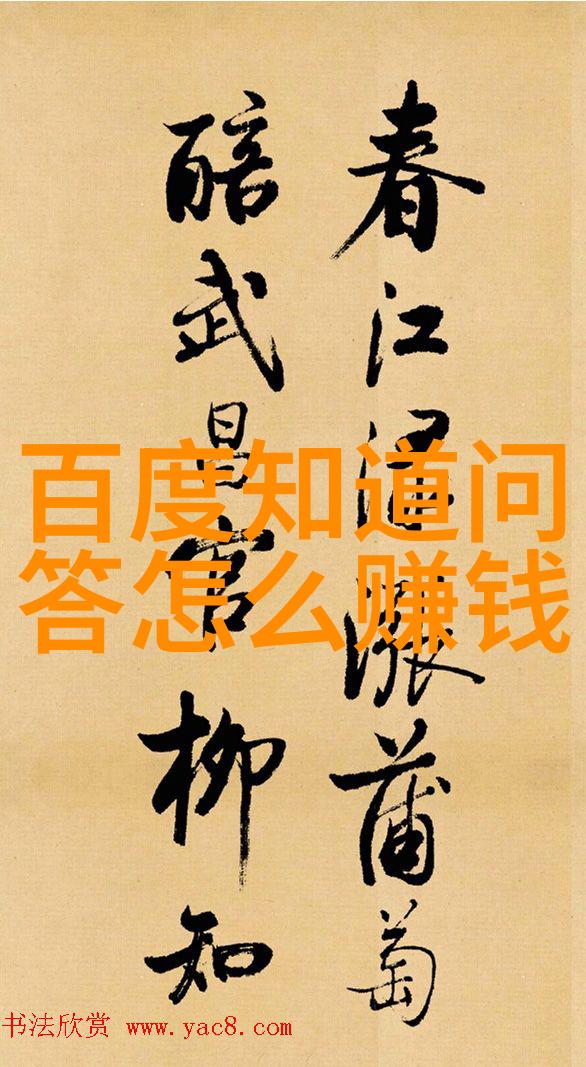 春江渌漲蒲萄
醅武昌官柳知
百度知道问
答怎么赚钱
书法欣赏 www.yac8.com